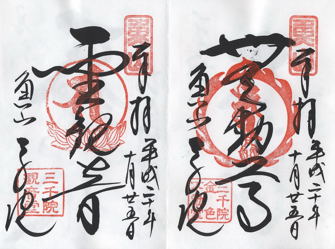 奉拝
平成二十年
十月廿五日
無動尊
魚山
三千院
三千院
金色
奉拝
平成二十年
十月廿五日
聖観音
魚山
三千院
三千院
観音堂